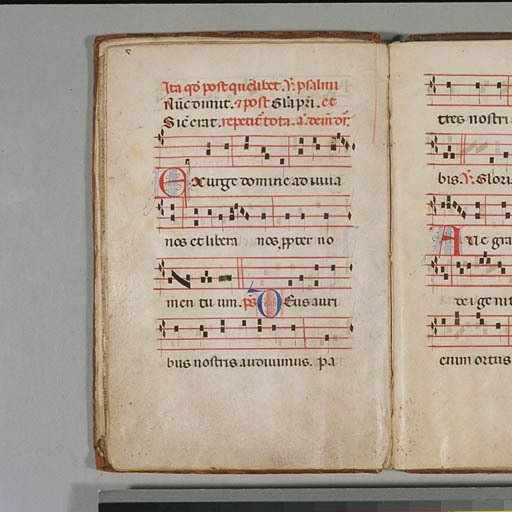 Ita qd post quēlibet. V. psalmi
Nūc dimit. et post Gła pri. et
Sic erat. repetit tota. a. deinde
Exurge domine adiuva
nos et libera nos ppter no
men tu um. ps Deus auri
bus nostris audivimus. pa
tres nostri
bis. V. Glori
A ve gra
dei genit
enim ortus